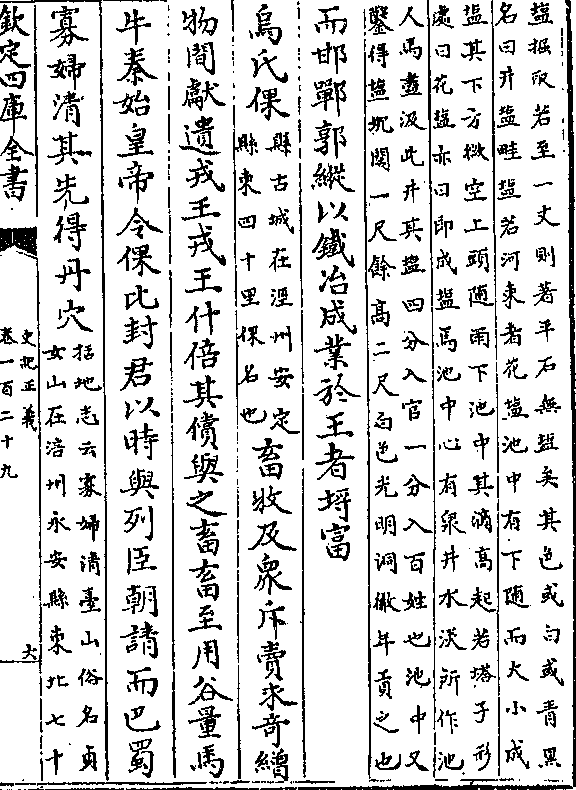 鹽掘取若至一丈則著平石無鹽矣其色或白或青黑
名曰井鹽畦鹽若河東者花鹽池中有下隨而大小成
鹽其下方微空上頭隨雨下池中其滴高起若塔子形
處曰花鹽亦曰即成鹽焉池中心有泉井水淡所作池
人馬盡汲此井其鹽四分入官一分入百姓也池中又
鑿得鹽塊闊一尺餘高二尺白色光明洞徹年貢之也
而邯鄲郭縱以鐵冶成業於王者埒富
烏氏倮
縣古城在涇州安定
縣東四十里倮名也
畜牧及衆斥賣求奇繒
物間獻遺戎王戎王什倍其償與之畜畜至用谷量馬
牛秦始皇帝令倮比封君以時與列臣朝請而巴蜀
寡婦清其先得丹穴
括地志云寡婦清臺山俗名貞
女山在涪州永安縣東北七十
欽定四庫全書
史記正義
卷一百二十九
六